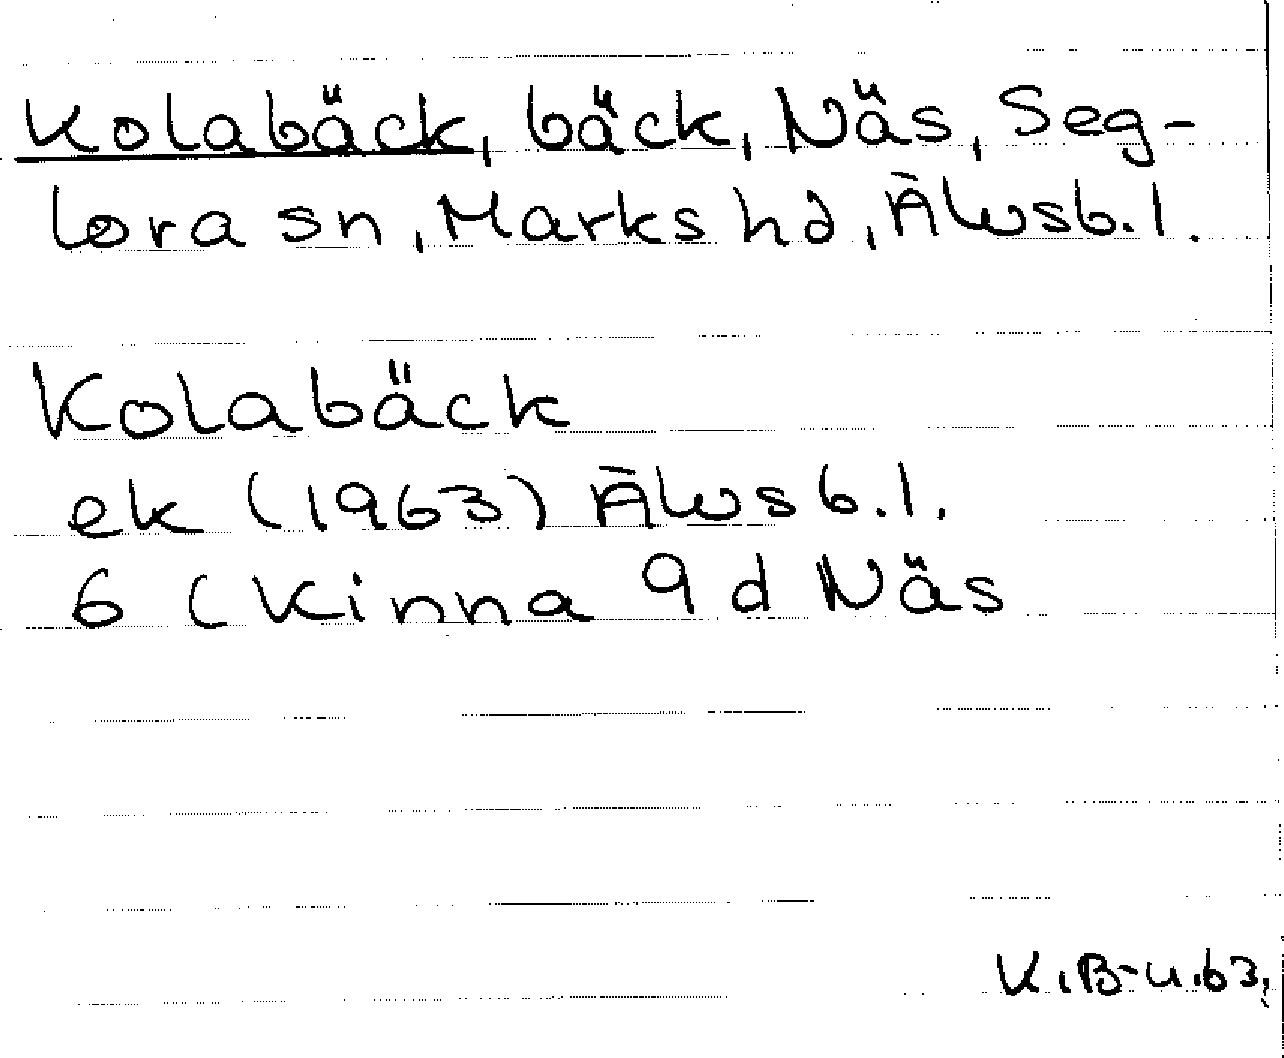 Kolabäck, bäck, Näs, Seg-
lora sn, Marks hd, Älvsb.l.
Kolabäck
ek (1963) Älvsb.l.
6 (Kinna 9d Näs
K.B-u.63.